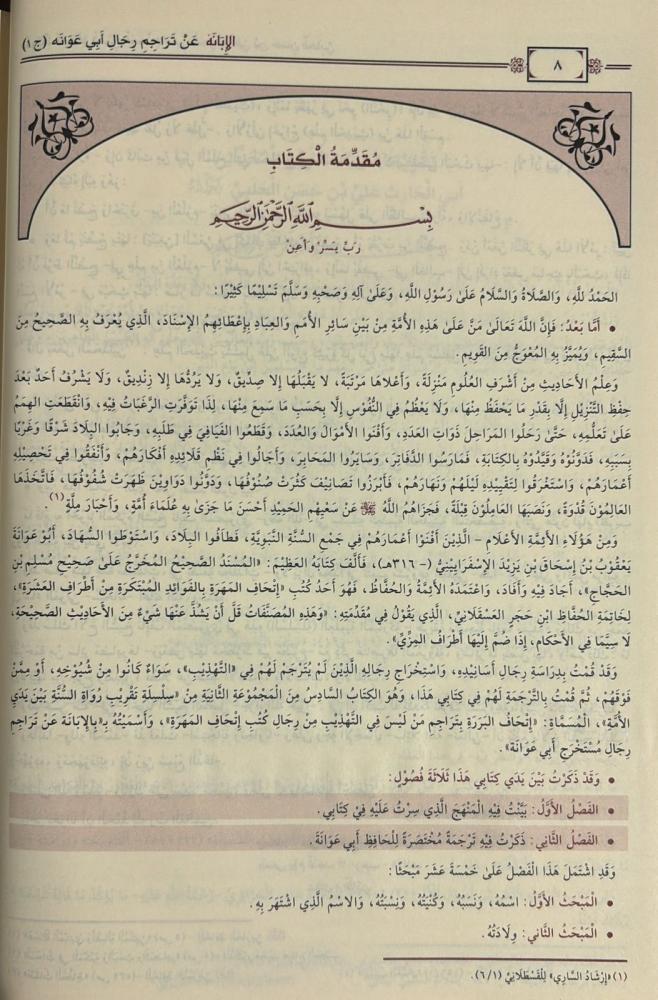 الإِبَانَة عَنْ تَرَاجِمِ رِجَالِ أَبِي عَوَانَه (ج ١)
٨
مُقَدِّمَةُ الْكِتَابِ
بِسْمِ اللهِ الرَّحْمٰنِ الرَّحِيْمِ
رَبِّ يَسِّرْ وَأَعِنْ
الحَمْدُ للهِ، وَالصَّلَاةُ وَالسَّلَامُ عَلَىٰ رَسُوْلِ اللهِ، وَعَلَىٰ آلِهِ وَصَحْبِهِ وَسَلَّمَ تَسْلِيْمًا كَثِيْرًا:
• أَمَّا بَعْدُ: فَإِنَّ اللهَ تَعَالَىٰ مَنَّ عَلَىٰ هَذِهِ الأُمَّةِ مِنْ بَيْنِ سَائِرِ الأُمَمِ وَالعِبَادِ بِإِعْطَائِهِمُ الإِسْنَادَ، الَّذِي يُعْرَفُ بِهِ الصَّحِيْحُ مِنَ
السَّقِيمِ، وَيُمَيَّزُ بِهِ المُعْوَجُّ مِنَ القَوِيمِ.
وَعِلْمُ الأَحَادِيثِ مِنْ أَشْرَفِ العُلُومِ مَنْزِلَةً، وَأَعْلَاهَا مَرْتَبَةً، لا يَقْبَلُهَا إِلا صِدِّيقٌ، وَلا يَرُدُّهَا إِلا زِنْدِيقٌ، وَلَا يَشْرُفُ أَحَدٌ بَعْدَ
حِفْظِ التَّنْزِيْلِ إِلَّا بِقَدْرِ مَا يَحْفَظُ مِنْهَا، وَلَا يَعْظُمُ فِي النُّفُوْسِ إِلَّا بِحَسَبِ مَا سَمِعَ مِنْهَا، لِذَا تَوَفَّرَتِ الرَّغَبَاتُ فِيْهِ، وَانْقَطَعَتِ الهِمَمُ
عَلَىٰ تَعَلُّمِهِ، حَتَّىٰ رَحَلُوا المَرَاحِلَ ذَوَاتِ العَدَدِ، وَأَفْنَوُا الأَمْوَالَ وَالعُدَدَ، وَقَطَعُوا الفَيَافِيَ فِي طَلَبِهِ، وَجَابُوا البِلَادَ شَرْقًا وَغَرْبًا
بِسَبَبِهِ، فَدَوَّنُوْهُ وَقَيَّدُوْهُ بِالكِتَابَةِ، فَمَارَسُوا الدَّفَاتِرَ، وَسَايَرُوا المَحَابِرَ، وَأَجَالُوا فِي نَظْمِ قَلَائِدِهِ أَفْكَارَهُمْ، وَأَنْفَقُوا فِي تَحْصِيْلِهِ
أَعْمَارَهُمْ، وَاسْتَغْرَقُوا لِتَقْيِيْدِهِ لَيْلَهُمْ وَنَهَارَهُمْ، فَأَبْرَزُوا تَصَانِيْفَ كَثُرَتْ صُنُوْفُهَا، وَدَوَّنُوا دَوَاوِيْنَ ظَهَرَتْ شُفُوْفُهَا، فَاتَّخَذَهَا
العَالِمُوْنَ قُدْوَةً، وَنَصَبَهَا العَامِلُوْنَ قِبْلَةً، فَجَزَاهُمُ اللهُ ﷻ عَنْ سَعْيِهِمِ الحَمِيْدِ أَحْسَنَ مَا جَزَىٰ بِهِ عُلَمَاءَ أُمَّةٍ، وَأَحْبَارَ مِلَّةٍ(١).
وَمِنْ هَؤُلَاءِ الأَئِمَّةِ الأَعْلَامِ - الَّذِيْنَ أَفْنَوْا أَعْمَارَهُمْ فِي جَمْعِ السُّنَّةِ النَّبَوِيَّةِ، فَطَافُوا البِلَادَ، وَاسْتَوْطَنُوا السُّهَادَ، أَبُو عَوَانَةَ
يَعْقُوْبُ بْنُ إِسْحَاقَ بْنِ يَزِيْدَ الإِسْفَرَايِيْنِيُّ (-٣١٦هـ)، فَأَلَّفَ كِتَابَهُ العَظِيْمَ: «المُسْنَدُ الصَّحِيْحُ المُخَرَّجُ عَلَىٰ صَحِيْحِ مُسْلِمِ بْنِ
الحَجَّاجِ»، أَجَادَ فِيْهِ وَأَفَادَ، وَاعْتَمَدَهُ الأَئِمَّةُ وَالحُفَّاظُ، فَهُوَ أَحَدُ كُتُبِ «إِتْحَافِ المَهَرَةِ بِالفَوَائِدِ المُبْتَكَرَةِ مِنْ أَطْرَافِ العَشَرَةِ»،
لِخَاتِمَةِ الحُفَّاظِ ابْنِ حَجَرٍ العَسْقَلَانِيِّ، الَّذِي يَقُوْلُ فِي مُقَدِّمَتِهِ: «وَهَذِهِ المُصَنَّفَاتُ قَلَّ أَنْ يَشُذَّ عَنْهَا شَيْءٌ مِنَ الأَحَادِيْثِ الصَّحِيْحَةِ،
لَا سِيَّمَا فِي الأَحْكَامِ، إِذَا ضُمَّ إِلَيْهَا أَطْرَافُ المِزِّيِّ».
وَقَدْ قُمْتُ بِدِرَاسَةِ رِجَالِ أَسَانِيْدِهِ، وَاسْتِخْرَاجِ رِجَالِهِ الَّذِيْنَ لَمْ يُتَرْجَمْ لَهُمْ فِي «التَّهْذِيْبِ»، سَوَاءٌ كَانُوا مِنْ شُيُوْخِهِ، أَوْ مِمَّنْ
فَوْقَهُمْ، ثُمَّ قُمْتُ بِالتَّرْجَمَةِ لَهُمْ فِي كِتَابِي هَذَا، وَهُوَ الكِتَابُ السَّادِسُ مِنَ المَجْمُوْعَةِ الثَّانِيَةِ مِنْ «سِلْسِلَةِ تَقْرِيْبِ رُوَاةِ السُّنَّةِ بَيْنَ يَدَيِ
الأُمَّةِ»، المُسَمَّاةِ: «إِتْحَافُ البَرَرَةِ بِتَرَاجِمِ مَنْ لَيْسَ فِي التَّهْذِيْبِ مِنْ رِجَالِ كُتُبِ إِتْحَافِ المَهَرَةِ»، وَأَسْمَيْتُهُ بِـ«بِالإِبَانَة عَنْ تَرَاجِمِ
رِجَالِ مُسْتَخْرَجِ أَبِي عَوَانَةَ».
• وَقَدْ ذَكَرْتُ بَيْنَ يَدَي كِتَابِي هَذَا ثَلَاثَةَ فُصُوْلٍ:
• الفَصْلُ الأَوَّلُ: بَيَّنْتُ فِيْهِ الْمَنْهَجَ الَّذِي سِرْتُ عَلَيْهِ فِيْ كِتَابِي.
• الفَصْلُ الثَّانِي: ذَكَرْتُ فِيْهِ تَرْجَمَةً مُخْتَصَرَةً لِلحَافِظِ أَبِي عَوَانَةَ.
وَقَدِ اشْتَمَلَ هَذَا الْفَصْلُ عَلَىٰ خَمْسَةَ عَشَرَ مَبْحَثًا:
• الْمَبْحَثُ الأَوَّلُ: اسْمُهُ، وَنَسَبُهُ، وَكُنْيَتُهُ، وَنِسْبَتُهُ، وَالاسْمُ الَّذِي اشْتَهَرَ بِهِ.
• الْمَبْحَثُ الثَّانِي: وِلَادَتُهُ.
(١) «إِرْشَادُ السَّارِي» لِلْقَسْطَلَانِيِّ (٦/١).